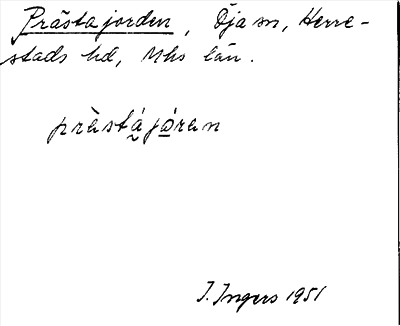 Prästajorden, Öja sn, Herre-
stads hd, Mhs län.
prästa̰jo̱ran
I. Ingers 1951